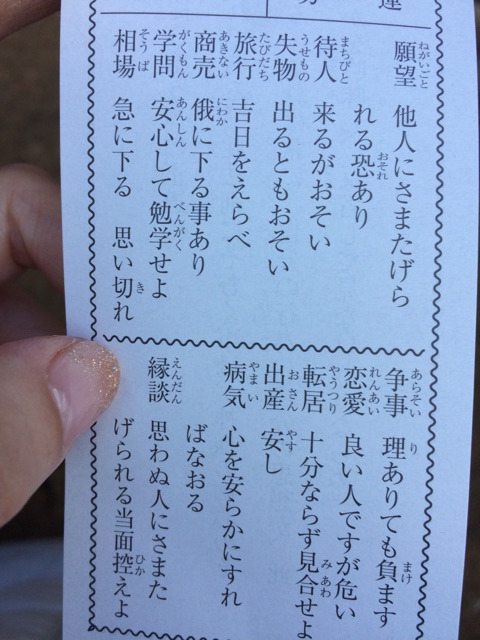 願望 他人にさまたげら
れる恐あり
待人 来るがおそい
失物 出るともおそい
旅行 吉日をえらべ
商売 俄に下る事あり
学問 安心して勉学せよ
相場 急に下る 思い切れ
争事 理ありても負ます
恋愛 良い人ですが危い
転居 十分ならず見合せよ
出産 安し
病気 心を安らかにすれ
ばなおる
縁談 思わぬ人にさまた
げられる当面控えよ